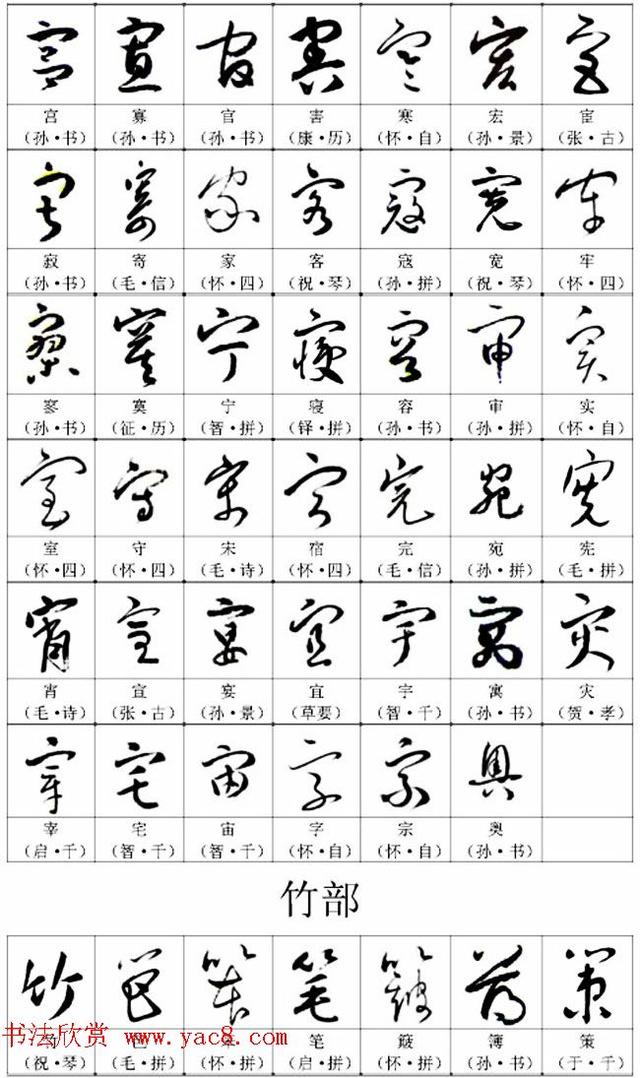 宫 寡 官 害 寒 宏 宦
(孙·书) (孙·书) (孙·书) (康·历) (怀·自) (孙·景) (张·古)
寂 寄 家 客 寇 宽 牢
(孙·书) (毛·信) (怀·四) (祝·琴) (孙·拼) (祝·琴) (怀·四)
寥 寞 宁 寝 容 审 实
(孙·书) (征·历) (智·拼) (铎·拼) (孙·书) (孙·拼) (怀·自)
室 守 宋 宿 完 宛 宪
(怀·四) (怀·四) (毛·诗) (怀·四) (毛·信) (孙·拼) (毛·拼)
宵 宣 宴 宜 宇 寓 灾
(毛·诗) (张·古) (孙·景) (草要) (智·千) (孙·书) (贺·孝)
宰 宅 宙 字 宗 奥
(启·千) (智·千) (智·千) (怀·自) (怀·自) (孙·书)
竹部
笔 簸 簿 策
书法欣赏 www.yac8.com
(祝·琴) (毛·拼) (怀·拼) (启·拼) (怀·拼) (孙·书) (于·千)